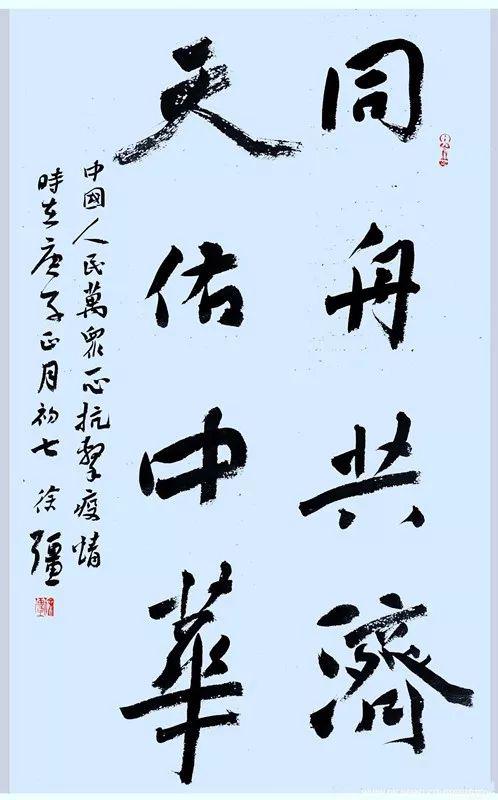 同舟共濟
天佑中華
中國人民萬眾一心抗擊疫情
時在庚子正月初七 徐疆